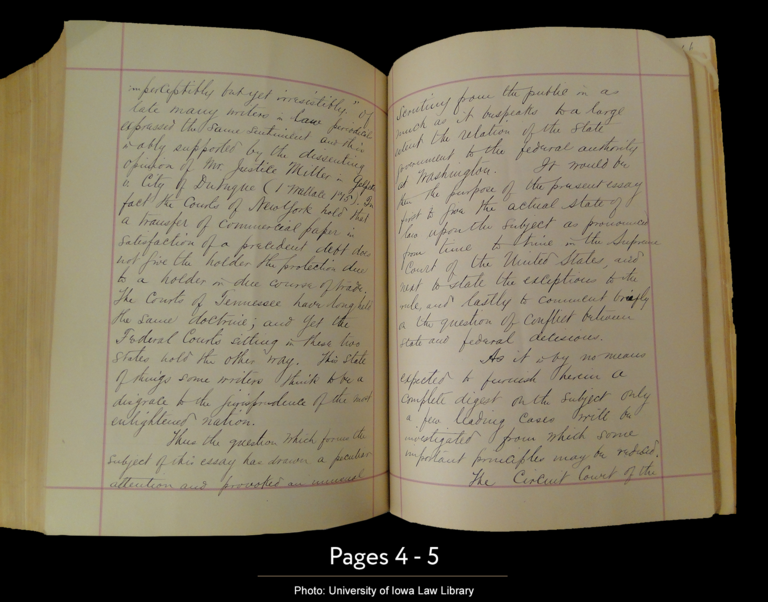 imperceptibly but yet irresistibly." Of
late many writers in law periodicals
expressed the same sentiment and this
is ably supported by the dissenting
opinion of Mr. Justice Miller in Gelpcke
v City of Dubuque (1 Wallace 175). In
fact the Courts of New York hold that
a transfer of commercial paper in
satisfaction of a precedent debt does
not give the holder the protection due
to a holder in due course of trade.
The Courts of Tennessee have long held
the same doctrine; and yet the
Federal Courts sitting in these two
States hold the other way. This state
of things some writers think to be a
disgrace to the jurisprudence of the most
enlightened nation.
Thus the question which forms the
subject of this essay has drawn a peculiar
attention and provoked an unusual
from the public in as
much as it bespeaks to a large
extent the relation of the State
government to the federal authority
at Washington. It would be
then the purpose of the present essay
first to give the actual state of
law upon the subject as pronounced
from time to time in the Supreme
Court of the United States, and
next to state the exceptions to the
rule and lastly to comment briefly
on the question of conflict between
state and federal decisions.
As it is by no means
expected to furnish herein a
complete digest on the subject only
a few leading cases will be
investigated from which some
important principles may be
The Circuit Court of the
Pages 4 - 5
Photo: University of Iowa Law Library